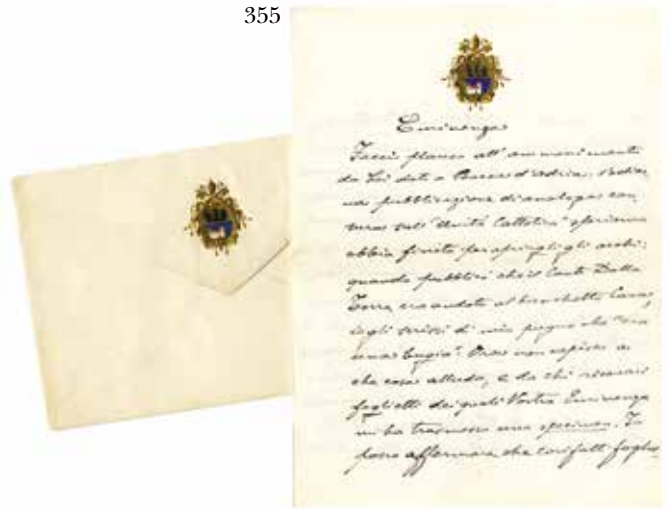 355
Eminenza
Faccio plauso all'ammonimento
da Lei dato a Bocca d'adria. Vedia
una pubblicazione di analoga
sull' "Unità Cattolica" speriamo
abbia finito per aprirgli gli occhi:
quando pubblicò che il Conte Dalla
Torre, era andato al banchetto
io gli scrissi di mio pugno che "era
una bugia". Ora non capisco a
che cosa alluda, e da chi
foglietti dei quali Vostra Eminenza
mi ha trasmesso uno specimen. Io
posso affermare che così fatti fogli